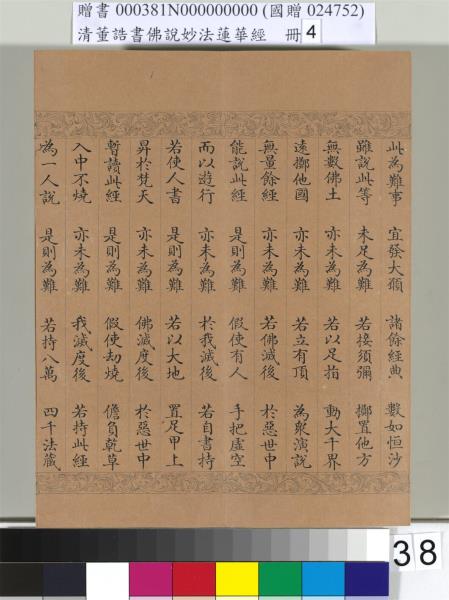 贈書 000381N000000000 (國贈 024752)
清董誥書佛說妙法蓮華經 冊 4
此為難事 宜發大願 諸餘經典 數如恒沙
雖說此等 未足為難 若接須彌 擲置他方
無數佛土 亦未為難 若以足指 動大千界
遠擲他國 亦未為難 若立有頂 為衆演說
無量餘經 亦未為難 若佛滅後 於惡世中
能說此經 是則為難 假使有人 手把虛空
而以遊行 亦未為難 於我滅後 若自書持
若使人書 是則為難 若以大地 置足甲上
昇於梵天 亦未為難 佛滅度後 於惡世中
暫讀此經 是則為難 假使劫燒 擔負乾草
入中不燒 亦未為難 我滅度後 若持此經
為一人說 是則為難 若持八萬 四千法藏
38